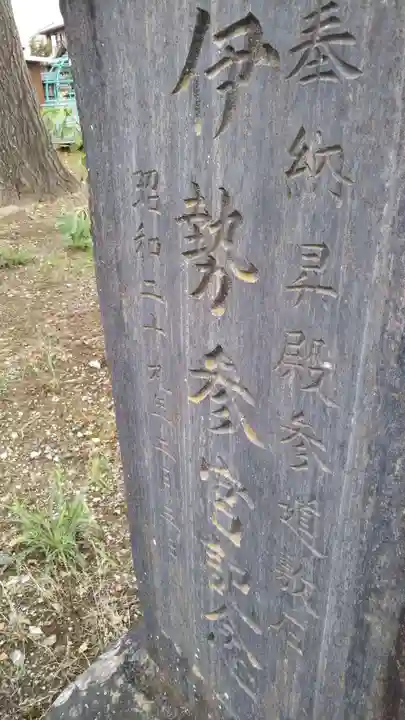 奉納昇殿参道敷石
伊勢参宮記念
昭和二十九年三月